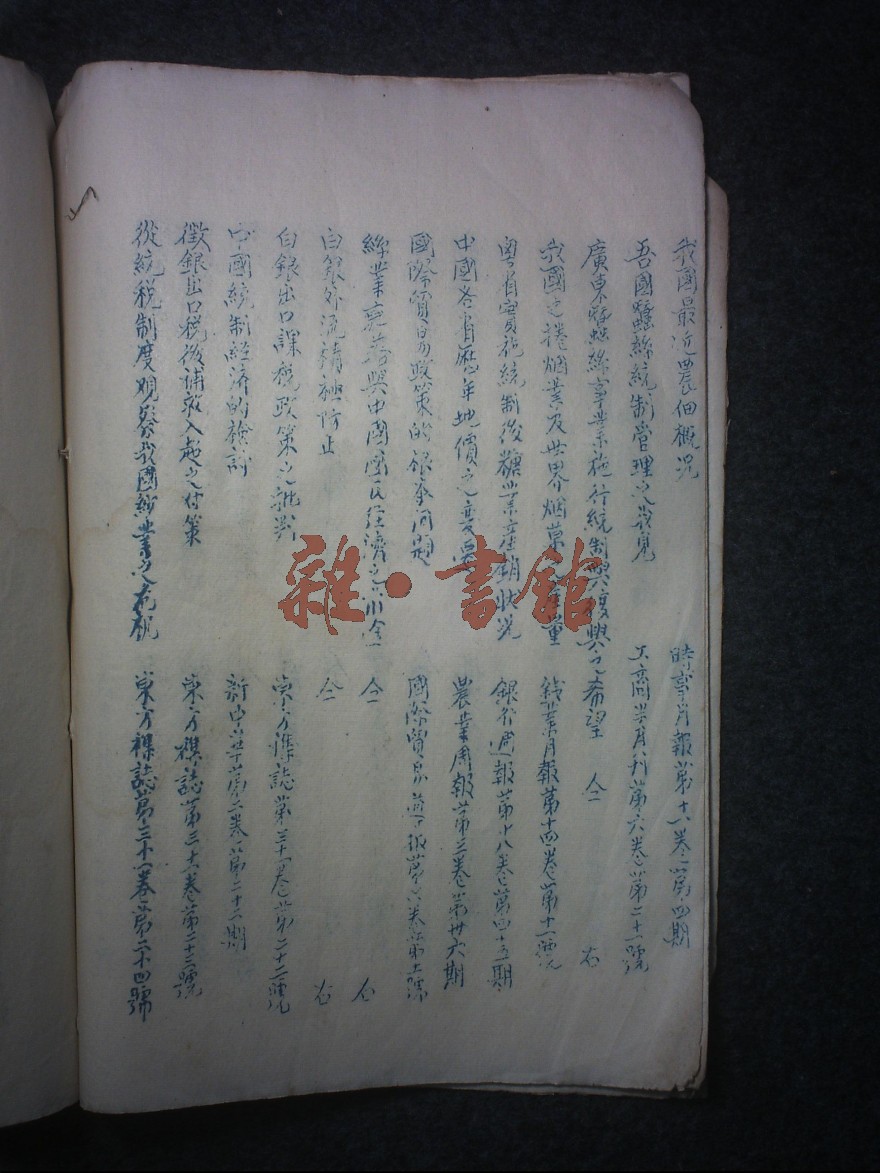 我國最近農佃概況 時事月報第十一卷第四期
吾國蠶絲統制管理之我見 工商半月刊第六卷第二十一號
廣東蠶絲事業施行統制與復興之希望 仝 右
我國之捲烟業及世界烟葉產量 錢業月報第十四卷第十一號
粵省實施統制後糖業產銷狀況 銀行週報第十八卷第四十五期
中國各省歷年地價之變遷 農業周報第三卷第卅六期
國際貿易政策的根本問題 國際貿易導報第六卷第十一號
絲業衰落與中國國民經濟之 仝 仝
白銀外流積極防止 仝 右
白銀出口課稅政策之批判 東方雜誌第三十一卷第二十二號
中國統制經濟的檢討 新中華第二卷第二十二期
徵銀出口稅後補救入超之對策 東方雜誌第三十一卷第二十三號
從統稅制度觀察我國紗業之危机 東方雜誌第三十一卷第二十四號
雜·書館